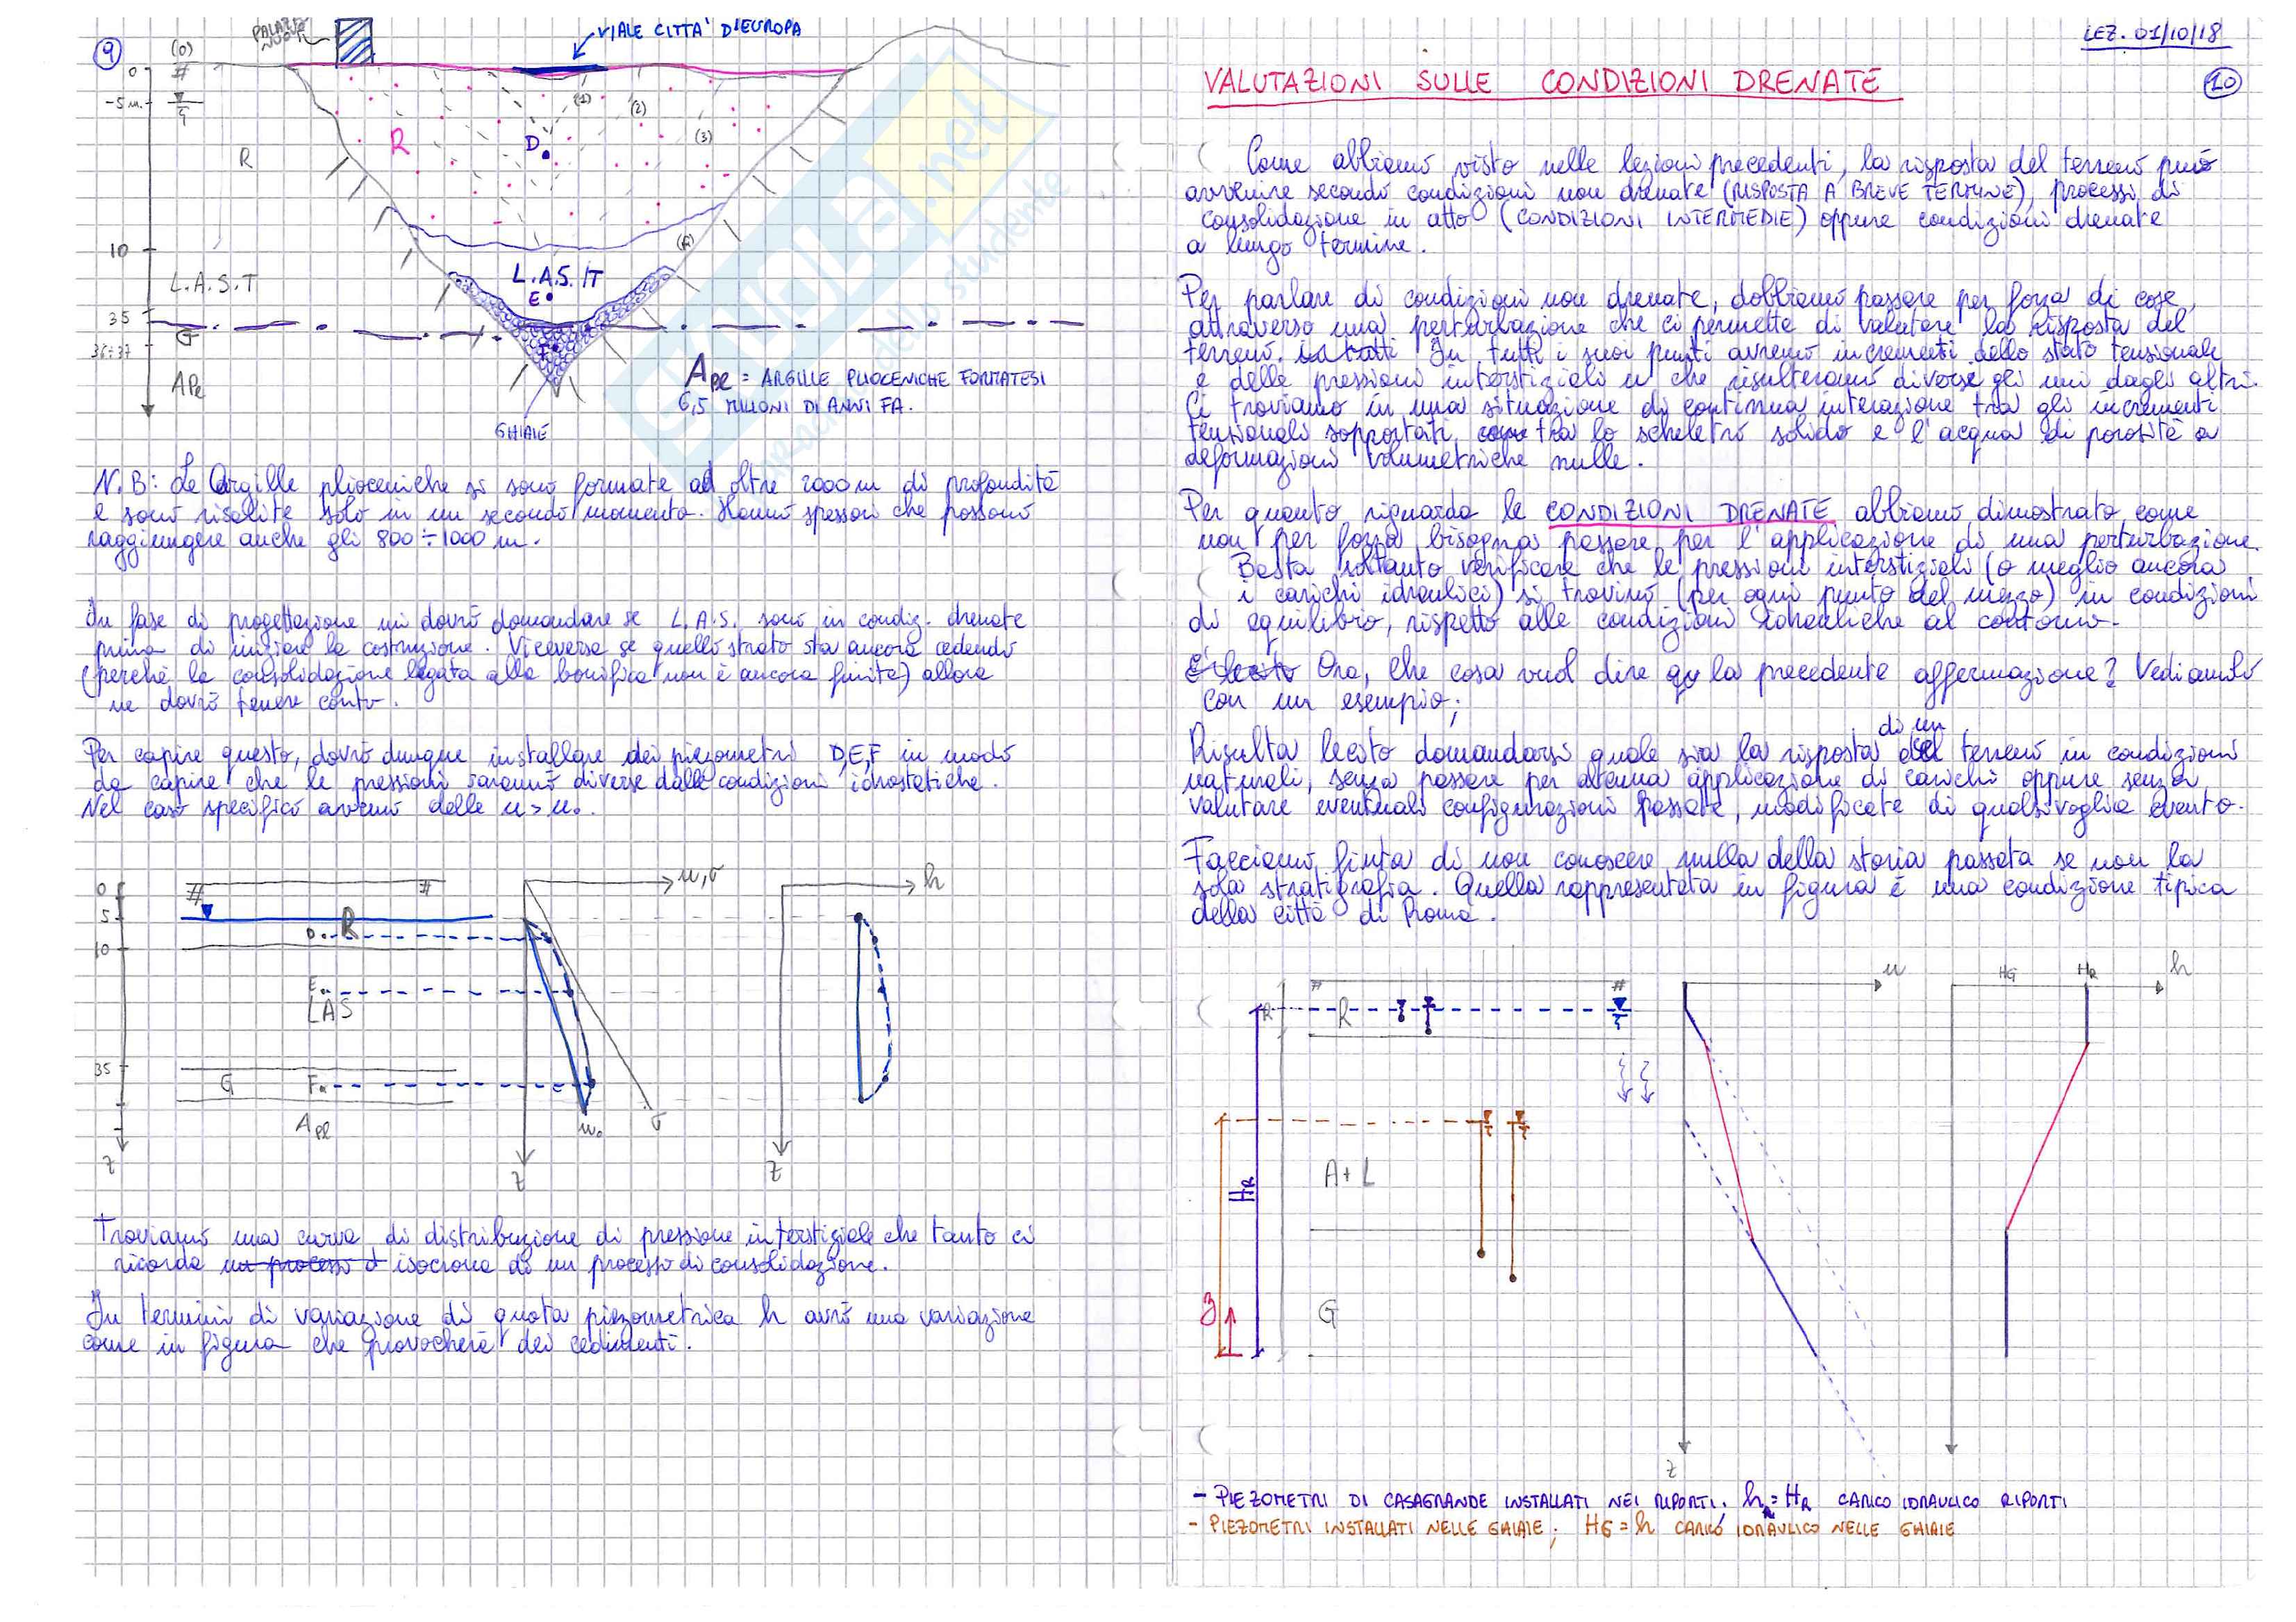 9
(0)
PALAZZI NUOVI
VIALE CITTA' D'EUROPA
0
-5 m.
(1)
(2)
(3)
R
R
D
10
L.A.S.T
L.A.S./T
E
35
G
36÷37
F
APl
APl = ARGILLE PLIOCENICHE FORMATESI
6,5 MILIONI DI ANNI FA.
GHIAIE
N.B: Le Argille plioceniche si sono formate ad oltre 2000 m di profondità
e sono risalite solo in un secondo momento. Hanno spessori che possono
raggiungere anche gli 800÷1000 m.
In fase di progettazione mi dovrò domandare se L.A.S. sono in condiz. drenate
prima di iniziare la costruzione. Viceversa se quello strato sta ancora cedendo
(perché la consolidazione legata alla bonifica non è ancora finita) allora
ne dovrò tenere conto.
Per capire questo, dovrò dunque installare dei piezometri D,E,F in modo
da capire che le pressioni saranno diverse dalle condizioni idrostatiche.
Nel caso specifico avremo delle u > u₀.
0
5
10
35
z
R
D
E
LAS
G
F
APl
u,σ
u₀
σ
z
h
z
Troviamo una curva di distribuzione di pressione interstiziale che tanto ci
ricorda un processo d isocrona di un processo di consolidazione.
In termini di variazione di quota piezometrica h avrò una variazione
come in figura che provocherà dei cedimenti.
LEZ. 01/10/18
10
VALUTAZIONI SULLE CONDIZIONI DRENATE
Come abbiamo visto nelle lezioni precedenti, la risposta del terreno può
avvenire secondo condizioni non drenate (RISPOSTA A BREVE TERMINE), processi di
consolidazione in atto (CONDIZIONI INTERMEDIE) oppure condizioni drenate
a lungo termine.
Per parlare di condizioni non drenate, dobbiamo passare per forza di cose,
attraverso una perturbazione che ci permette di valutare la risposta del
terreno. In tutti i suoi punti avremo incrementi dello stato tensionale
e delle pressioni interstiziali u che risulteranno diverse gli uni dagli altri.
Ci troviamo in una situazione di continua interazione tra gli incrementi
tensionali sopportati tra lo scheletro solido e l'acqua di porosità a
deformazioni volumetriche nulle.
Per quanto riguarda le CONDIZIONI DRENATE abbiamo dimostrato come
non per forza bisogna passare per l'applicazione di una perturbazione.
Basta soltanto verificare che le pressioni interstiziali (o meglio ancora
i carichi idraulici) si trovino (per ogni punto del mezzo) in condizioni
di equilibrio, rispetto alle condizioni idrauliche al contorno.
Ora, che cosa vuol dire la precedente affermazione? Vediamolo
con un esempio;
Risulta lecito domandarsi quale sia la risposta di un terreno in condizioni
naturali, senza passare per alcuna applicazione di carichi oppure senza
valutare eventuali configurazioni passate, modificate di qualsivoglia evento.
Facciamo finta di non conoscere nulla della storia passata se non la
sola stratigrafia. Quella rappresentata in figura è una condizione tipica
della città di Roma.
R
R
HR
A+L
G
z
u
z
HG
HR
h
- PIEZOMETRI DI CASAGRANDE INSTALLATI NEI RIPORTI; hR = HR CARICO IDRAULICO RIPORTI
- PIEZOMETRI INSTALLATI NELLE GHIAIE; HG = h CARICO IDRAULICO NELLE GHIAIE